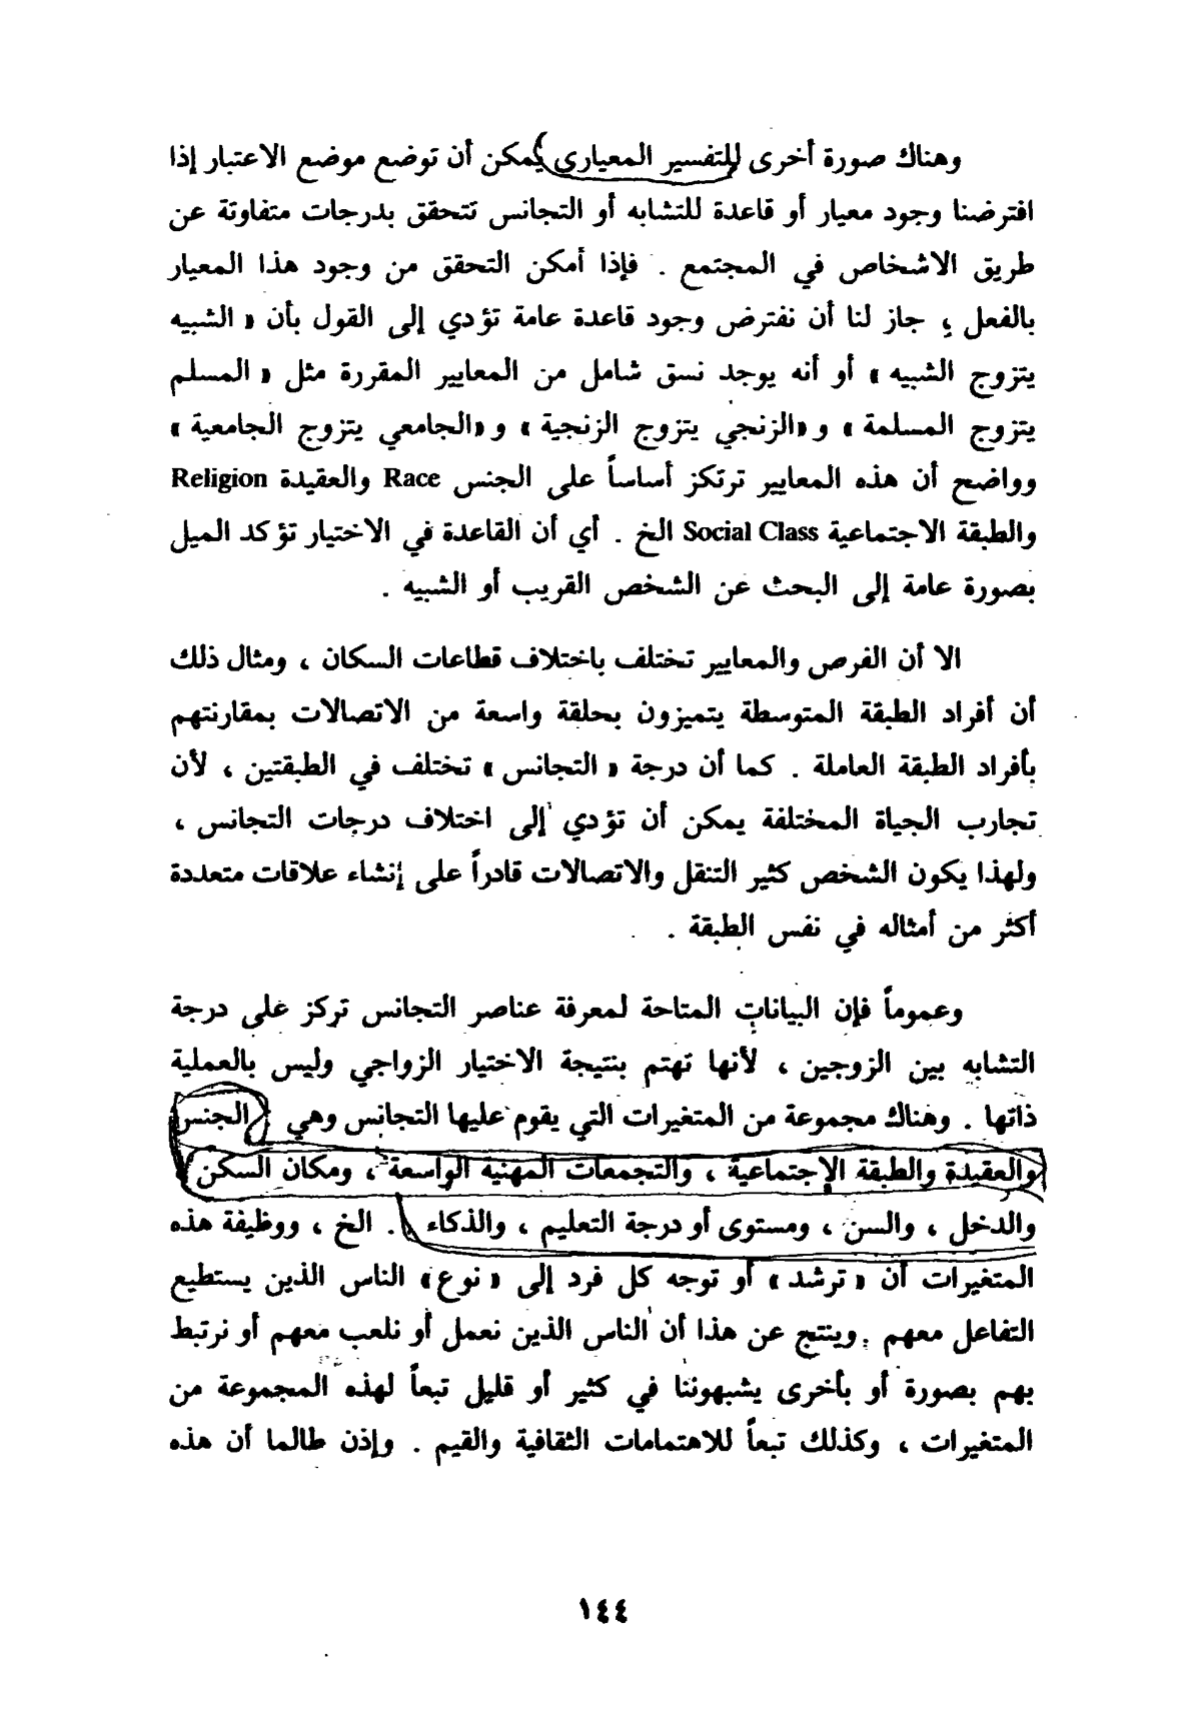 وهناك صورة أخرى للتفسير المعيارى يمكن أن توضع موضع الاعتبار إذا
افترضنا وجود معيار أو قاعدة للتشابه أو التجانس تتحقق بدرجات متفاوتة عن
طريق الاشخاص في المجتمع . فإذا أمكن التحقق من وجود هذا المعيار
بالفعل ، جاز لنا أن نفترض وجود قاعدة عامة تؤدي إلى القول بأن « الشبيه
يتزوج الشبيه » أو أنه يوجد نسق شامل من المعايير المقررة مثل « المسلم
يتزوج المسلمة » و «الزنجي يتزوج الزنجية » و «الجامعي يتزوج الجامعية »
وواضح أن هذه المعايير ترتكز أساساً على الجنس Race والعقيدة Religion
والطبقة الاجتماعية Social Class الخ . أي أن القاعدة في الاختيار تؤكد الميل
بصورة عامة إلى البحث عن الشخص القريب أو الشبيه .
الا أن الفرص والمعايير تختلف باختلاف قطاعات السكان ، ومثال ذلك
أن أفراد الطبقة المتوسطة يتميزون بحلقة واسعة من الاتصالات بمقارنتهم
بأفراد الطبقة العاملة . كما أن درجة « التجانس » تختلف في الطبقتين ، لأن
تجارب الحياة المختلفة يمكن أن تؤدي إلى اختلاف درجات التجانس ،
ولهذا يكون الشخص كثير التنقل والاتصالات قادراً على إنشاء علاقات متعددة
أكثر من أمثاله في نفس الطبقة .
وعموماً فإن البيانات المتاحة لمعرفة عناصر التجانس تركز على درجة
التشابه بين الزوجين ، لأنها تهتم بنتيجة الاختيار الزواجي وليس بالعملية
ذاتها . وهناك مجموعة من المتغيرات التي يقوم عليها التجانس وهي الجنس
والعقيدة والطبقة الإجتماعية ، والتجمعات المهنية الواسعة ، ومكان السكن
والدخل ، والسن ، ومستوى أو درجة التعليم ، والذكاء . الخ ، ووظيفة هذه
المتغيرات أن « ترشد » أو توجه كل فرد إلى « نوع» الناس الذين يستطيع
التفاعل معهم . وينتج عن هذا أن الناس الذين نعمل أو نلعب معهم أو نرتبط
بهم بصورة أو بأخرى يشبهوننا في كثير أو قليل تبعاً لهذه المجموعة من
المتغيرات ، وكذلك تبعاً للاهتمامات الثقافية والقيم . وإذن طالما أن هذه
١٤٤